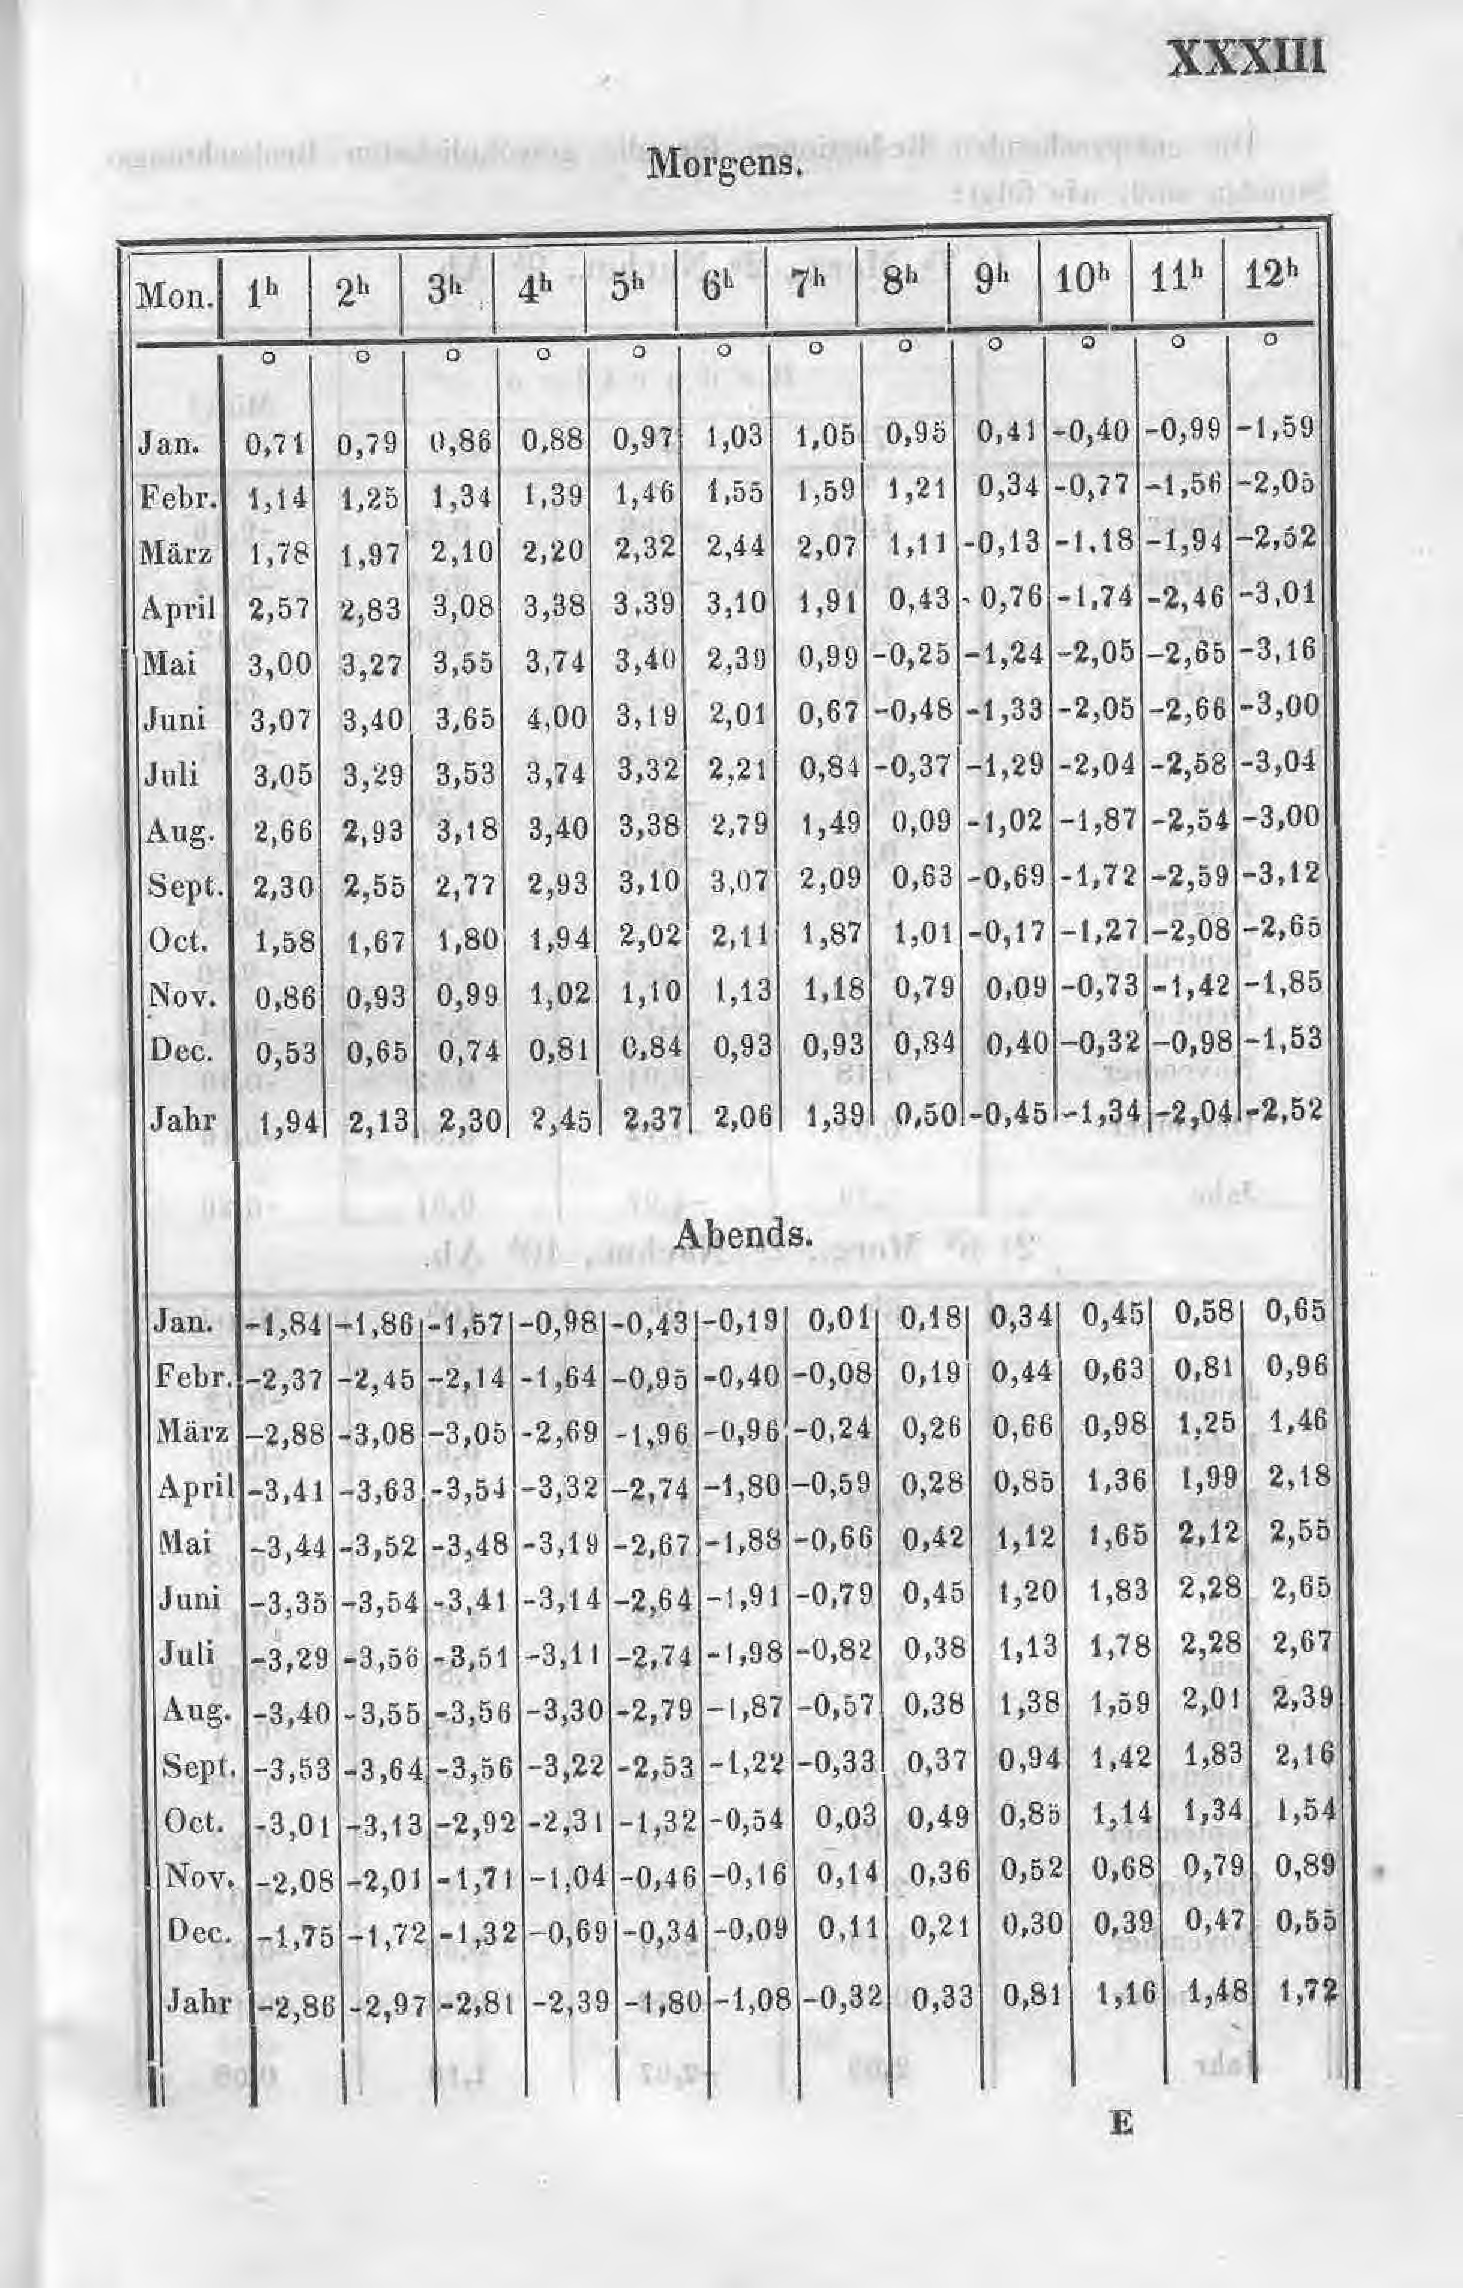 XXXIII
Morgens.
Mon. 1h 2h 3h 4h 5h 6h 7h 8h 9h 10h 11h 12h
o o o o o o o o o o o o
Jan. 0,71 0,79 0,86 0,88 0,97 1,03 1,05 0,95 0,41 -0,40 -0,99 -1,59
Febr. 1,14 1,25 1,34 1,39 1,46 1,55 1,59 1,21 0,34 -0,77 -1,56 -2,05
März 1,78 1,97 2,10 2,20 2,32 2,44 2,07 1,11 -0,13 -1,18 -1,94 -2,52
April 2,57 2,83 3,08 3,38 3,39 3,10 1,91 0,43 -0,76 -1,74 -2,46 -3,01
Mai 3,00 3,27 3,55 3,74 3,40 2,39 0,99 -0,25 -1,24 -2,05 -2,65 -3,16
Juni 3,07 3,40 3,65 4,00 3,19 2,01 0,67 -0,48 -1,33 -2,05 -2,66 -3,00
Juli 3,05 3,29 3,53 3,74 3,32 2,21 0,84 -0,37 -1,29 -2,04 -2,58 -3,04
Aug. 2,66 2,93 3,18 3,40 3,38 2,79 1,49 0,09 -1,02 -1,87 -2,54 -3,00
Sept. 2,30 2,55 2,77 2,93 3,10 3,07 2,09 0,63 -0,69 -1,72 -2,59 -3,12
Oct. 1,58 1,67 1,80 1,94 2,02 2,11 1,87 1,01 -0,17 -1,27 -2,08 -2,65
Nov. 0,86 0,93 0,99 1,02 1,10 1,13 1,18 0,79 0,09 -0,73 -1,42 -1,85
Dec. 0,53 0,65 0,74 0,81 0,84 0,93 0,93 0,84 0,40 -0,32 -0,98 -1,53
Jahr 1,94 2,13 2,30 2,45 2,37 2,06 1,39 0,50 -0,45 -1,34 -2,04 -2,52
Abends.
Jan. -1,84 -1,86 -1,57 -0,98 -0,43 -0,19 0,01 0,18 0,34 0,45 0,58 0,65
Febr. -2,37 -2,45 -2,14 -1,64 -0,95 -0,40 -0,08 0,19 0,44 0,63 0,81 0,96
März -2,88 -3,08 -3,05 -2,69 -1,96 -0,96 -0,24 0,26 0,66 0,98 1,25 1,46
April -3,41 -3,63 -3,54 -3,32 -2,74 -1,80 -0,59 0,28 0,85 1,36 1,99 2,18
Mai -3,44 -3,52 -3,48 -3,19 -2,67 -1,88 -0,66 0,42 1,12 1,65 2,12 2,55
Juni -3,35 -3,54 -3,41 -3,14 -2,64 -1,91 -0,79 0,45 1,20 1,83 2,28 2,65
Juli -3,29 -3,56 -3,51 -3,11 -2,74 -1,98 -0,82 0,38 1,13 1,78 2,28 2,67
Aug. -3,40 -3,55 -3,56 -3,30 -2,79 -1,87 -0,57 0,38 1,38 1,59 2,01 2,39
Sept. -3,53 -3,64 -3,56 -3,22 -2,53 -1,22 -0,33 0,37 0,94 1,42 1,83 2,16
Oct. -3,01 -3,13 -2,92 -2,31 -1,32 -0,54 0,03 0,49 0,85 1,14 1,34 1,54
Nov. -2,08 -2,01 -1,71 -1,04 -0,46 -0,16 0,14 0,36 0,52 0,68 0,79 0,89
Dec. -1,75 -1,72 -1,32 -0,69 -0,34 -0,09 0,11 0,21 0,30 0,39 0,47 0,55
Jahr -2,86 -2,97 -2,81 -2,39 -1,80 -1,08 -0,32 0,33 0,81 1,16 1,48 1,72
E